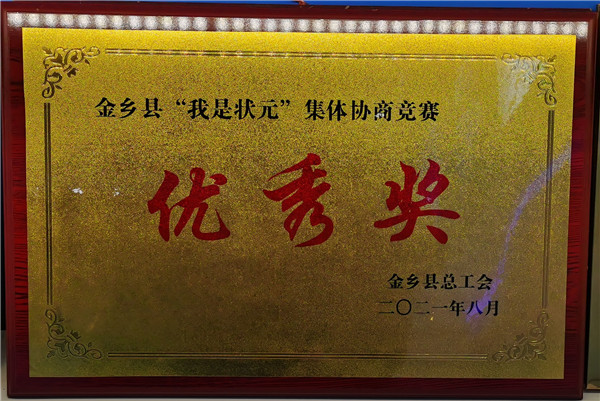 金乡县“我是状元”集体协商竞赛
优秀奖
金乡县总工会
二〇二一年八月